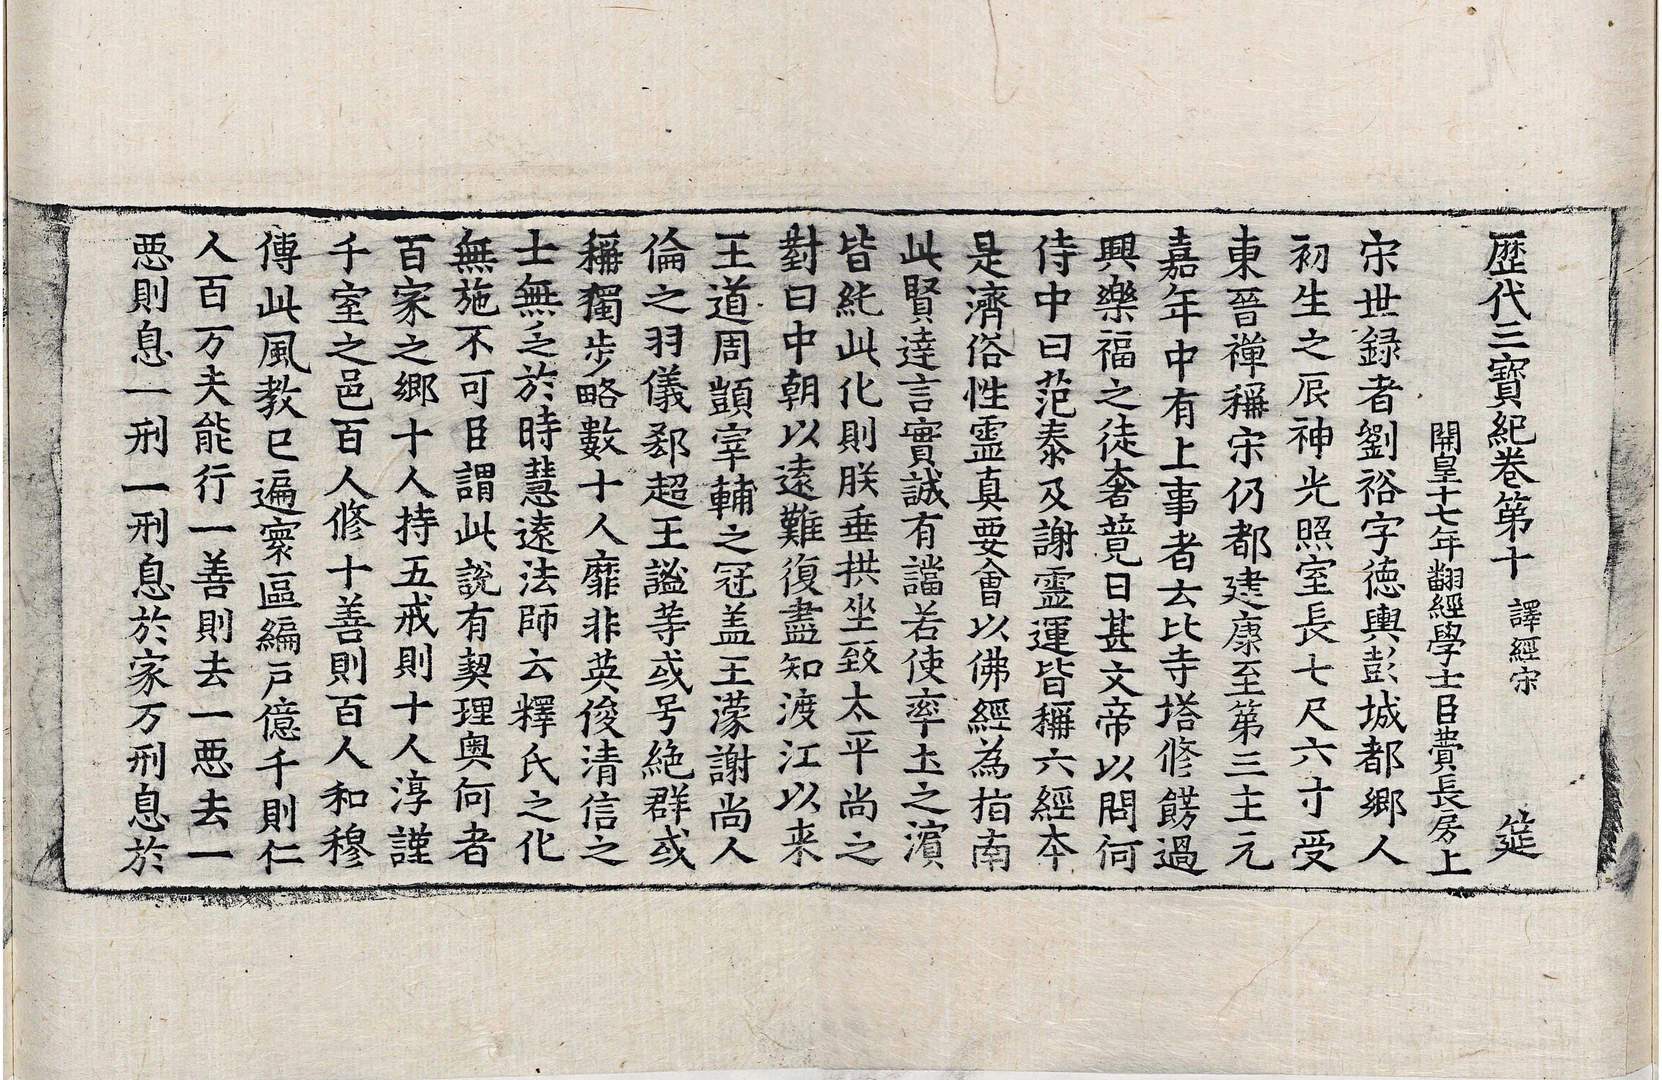 歷代三寶紀卷第十 譯經宋 筵
開皇十七年翻經學士臣費長房上
宋世録者劉裕字德輿彭城都鄉人
初生之辰神光照室長七尺六寸受
東晉禪稱宋仍都建康至第三主元
嘉年中有上事者云比寺塔修餝過
興樂福之徒奢競日甚文帝以問何
侍中曰范泰及謝靈運皆稱六經本
是濟俗性靈真要會以佛經為指南
此賢達言實誠有讜若使率土之濵
皆純此化則朕垂拱坐致太平尚之
對曰中朝以遠難復盡知渡江以来
王道周顗宰輔之冠盖王濛謝尚人
倫之羽儀郄超王謐等或号絶群或
稱獨步略數十人靡非英俊清信之
士無乏於時慧遠法師云釋氏之化
無施不可臣謂此說有契理奥何者
百家之鄉十人持五戒則十人淳謹
千室之邑百人修十善則百人和穆
傳此風教已遍寰區編戸億千則仁
人百万夫能行一善則去一悪去一
悪則息一刑一刑息於家万刑息於